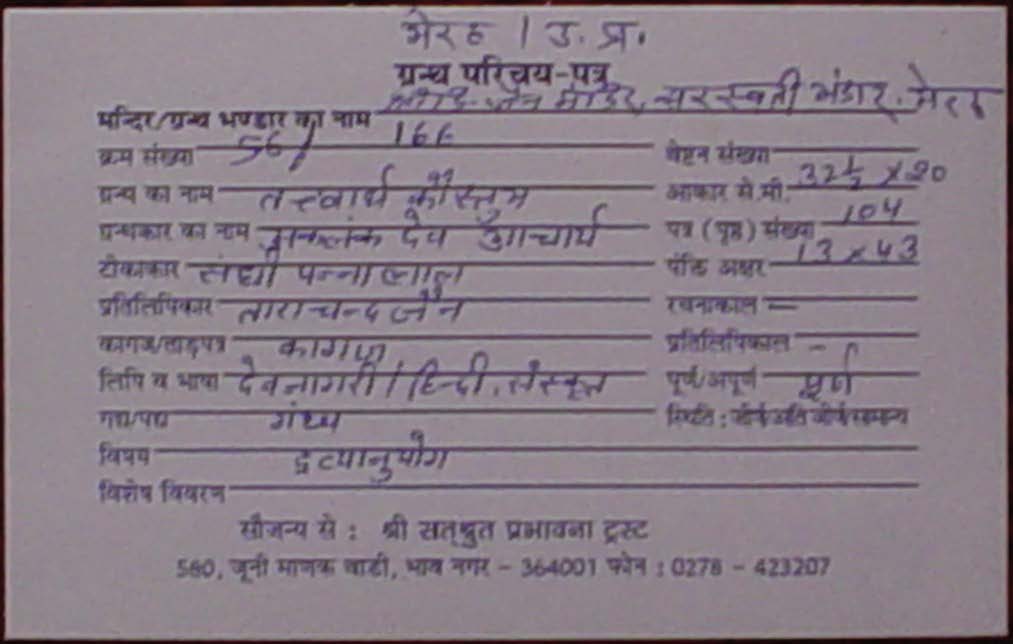 मेरठ / उ. प्र.
ग्रन्थ परिचय-पत्र
मन्दिर/ग्रन्थ भण्डार का नाम जैन मंदिर, सरस्वती भंडार. मेरठ
क्रम संख्या 56/ वेष्टन संख्या
ग्रन्थ का नाम तत्त्वार्थ कौस्तुभ आकार से.मी. 32½ × 20
ग्रन्थकार का नाम अकलंक देव आचार्य पत्र (पृष्ठ) संख्या 104
टीकाकार संघी पन्नालाल पंक्ति अक्षर 13 × 43
प्रतिलिपिकार ताराचन्द जैन रचनाकाल —
कागज/ताड़पत्र कागज प्रतिलिपिकाल —
लिपि व भाषा देवनागरी / हिन्दी, संस्कृत पूर्ण/अपूर्ण पूर्ण
गद्य/पद्य गध्य स्थिति : जीर्ण अति जीर्ण सामान्य
विषय द्रव्यानुयोग
विशेष विवरन
सौजन्य से : श्री सत्श्रुत प्रभावना ट्रस्ट
580, जूनी माणक वाडी, भाव नगर - 364001 फोन : 0278 - 423207